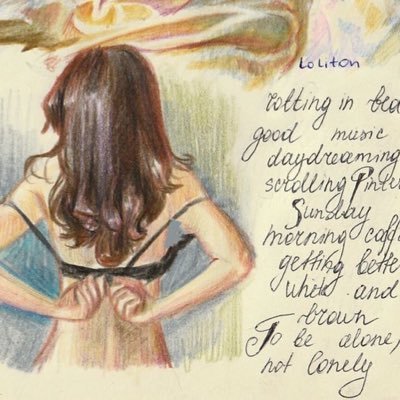 Loliton
rotting in bed
good music
daydreaming
scrolling Pinter
Sunday
morning coff
getting bette
white and
brown
To be alone,
not lonely